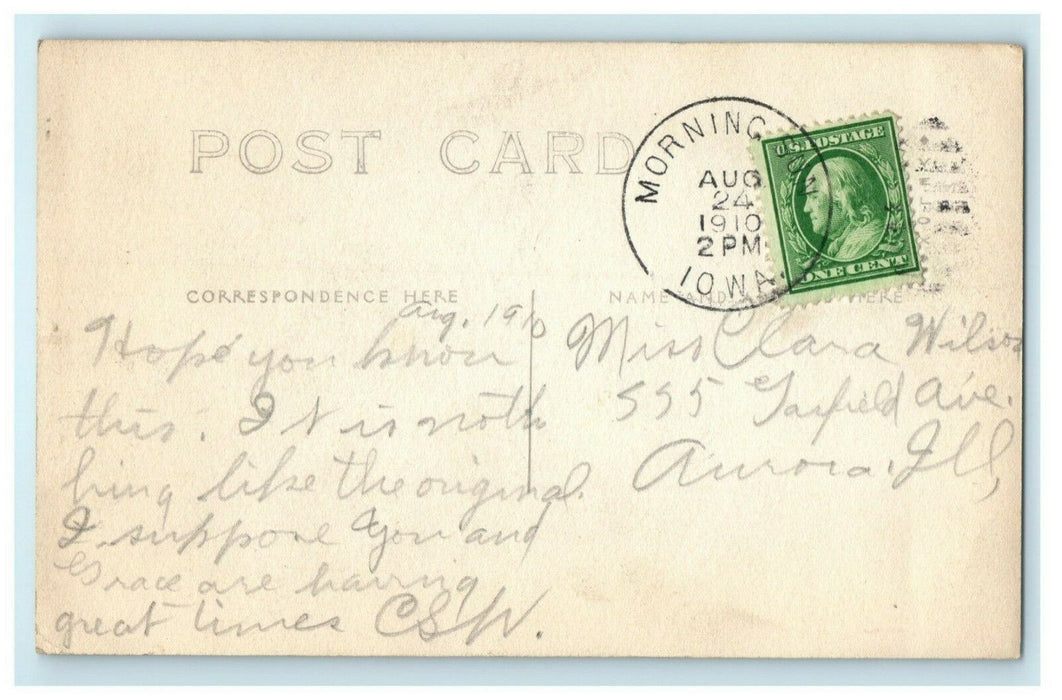 POST CARD
MORNING SUN
AUG
24
1910
2 PM
IOWA
U.S. POSTAGE
ONE CENT
CORRESPONDENCE HERE
NAME AND ADDRESS HERE
Aug. 1910
Hope you know
this. It is noth
hing like the original.
I suppose you and
Grace are having
great times CSW.
Miss Clara Wilson
555 Garfield Ave.
Aurora, Ill,